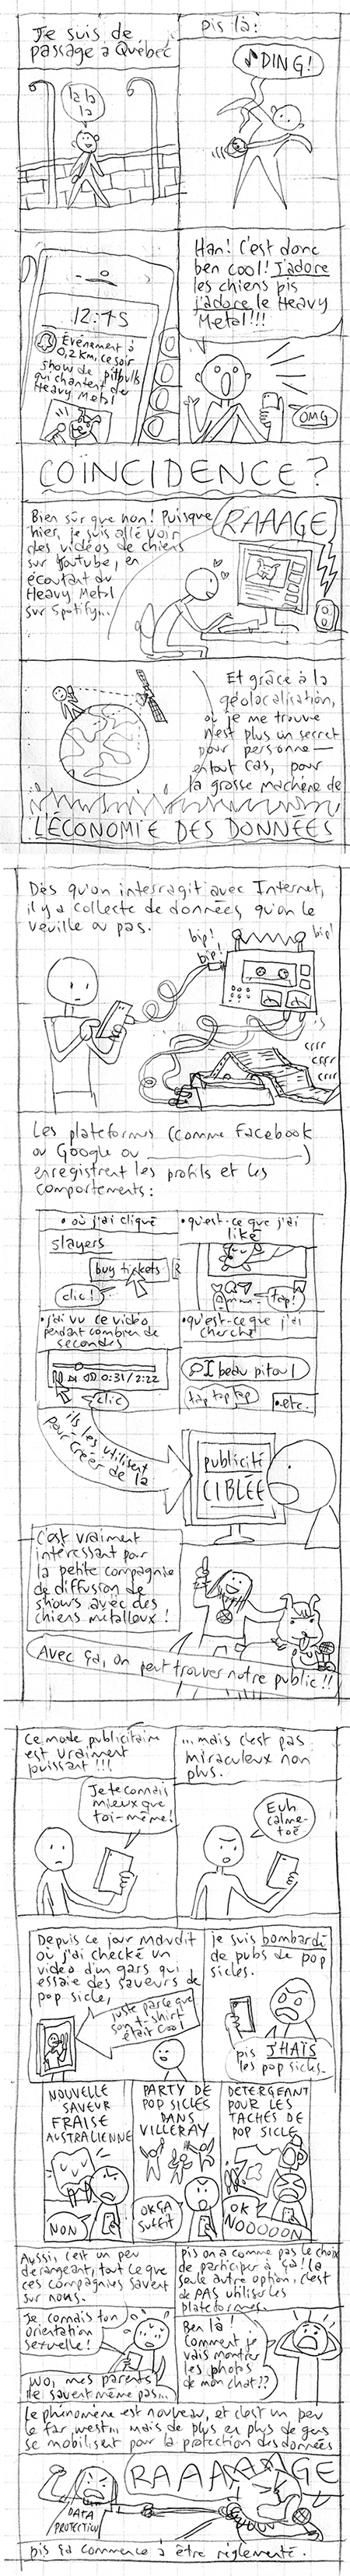 Je suis de
passage à Québec
la la
la
pis là:
♪DING!
12:45
Événement à
0,2 km. ce soir
show de pitbulls
qui chantent du
Heavy Metal
Han! C'est donc
ben cool! J'adore
les chiens pis
j'adore le Heavy
Metal!!!
OMG
COÏNCIDENCE?
Bien sûr que non! Puisque
hier, je suis allé voir
des vidéos de chiens
sur Youtube, en
écoutant du
Heavy Metal
sur Spotify...
RAAAGE
Et grâce à la
géolocalisation,
où je me trouve
n'est plus un secret
pour personne—
en tout cas, pour
la grosse machine de
L'ÉCONOMIE DES DONNÉES
Dès qu'on interragit avec Internet,
il y a collecte de données, qu'on le
veuille ou pas.
bip!
bip!
bip!
crrr
crrr
crrr
Les plateformes (comme Facebook
ou Google ou ____________)
enregistrent les profils et les
comportements:
• où j'ai cliqué
slayers
buy tickets
clic!
• qu'est-ce que j'ai
liké
tap!
• j'ai vu ce vidéo
pendant combien de
secondes
0:31/2:22
clic
• qu'est-ce que j'ai
cherché
beau pitou
tap tap tap
• etc.
ils les utilisent
pour créer de la
publicité
CIBLÉE
C'est vraiment
intéressant pour
la petite compagnie
de diffusion de
shows avec des
chiens métalleux!
Avec ça, on peut trouver notre public!!
Ce mode publicitaire
est vraiment
puissant!!!
Je te connais
mieux que
toi-même!
...mais c'est pas
miraculeux non
plus.
Euh
calme-
toé
Depuis ce jour maudit
où j'ai checké un
vidéo d'un gars qui
essaie des saveurs de
pop sicle,
juste parce que
son t-shirt
était cool
je suis bombardé
de pubs de pop
sicles.
pis J'HAÏS
les pop sicles.
NOUVELLE
SAVEUR
FRAISE
AUSTRALIENNE
NON
PARTY DE
POP SICLES
DANS
VILLERAY
OK ÇA
SUFFIT
DÉTERGEANT
POUR LES
TACHES DE
POP SICLE
OK
NOOOOON
Aussi, c'est un peu
dérangeant, tout ce que
ces compagnies savent
sur nous.
Je connais ton
orientation
sexuelle!
Wo, mes parents
le savent même pas...
pis on a comme pas le choix
de participer à ça! La
seule autre option, c'est
de PAS utiliser les
plateformes.
Ben là!
Comment je
vais montrer
les photos
de mon chat??
Le phénomène est nouveau, et c'est un peu
le far west... mais de plus en plus de gens
se mobilisent pour la protection des données
RAAAAAGE
DATA
PROTECTION
pis ça commence à être réglementé.